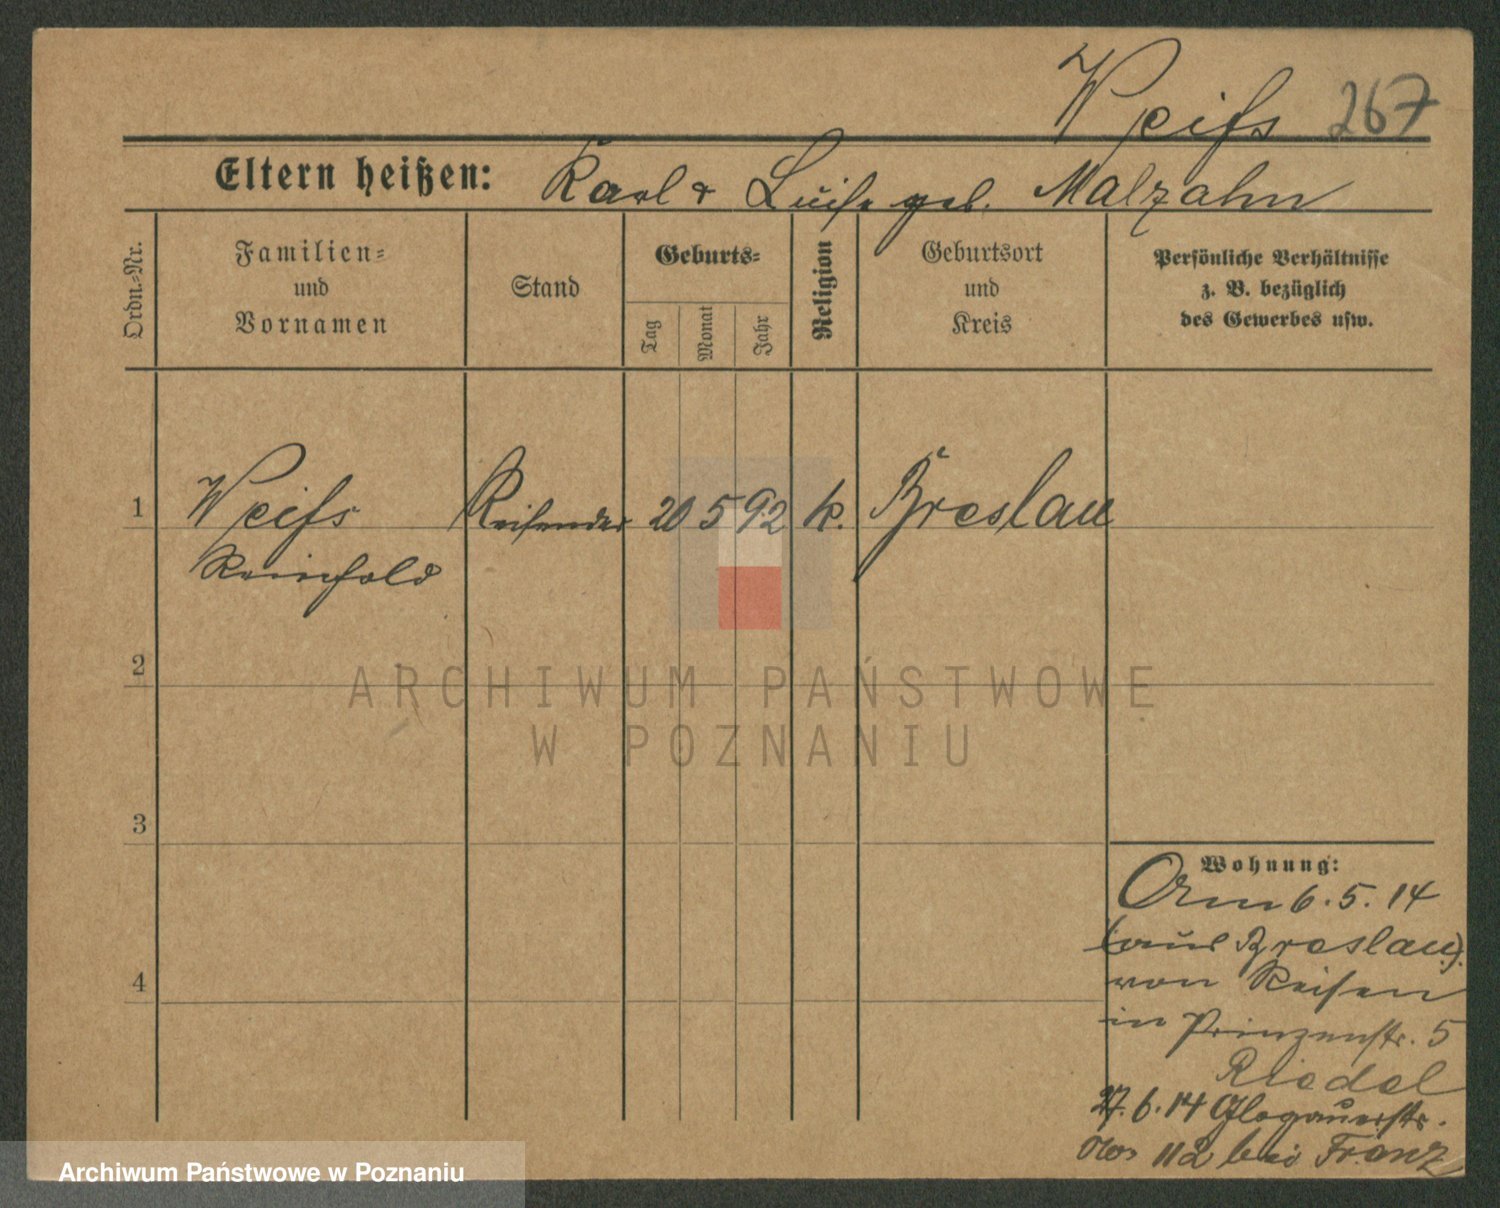 Weiſs 267
Eltern heißen: Karl & Luise geb. Malzahn
Ordn.-Nr.
Familien- und Vornamen
Stand
Geburts-
Tag
Monat
Jahr
Religion
Geburtsort und Kreis
Persönliche Verhältnisse
z. B. bezüglich
des Gewerbes usw.
1 Weiſs Reisender 20 5 92 k. Breslau
Reinhold
2
3
4
Wohnung:
6.5.14
(aus Breslau).
von Reisen
in Prinzenstr. 5
Riedel
27.6.14 Glogauerstr.
112 bei Franz
ARCHIWUM PAŃSTWOWE
W POZNANIU
Archiwum Państwowe w Poznaniu